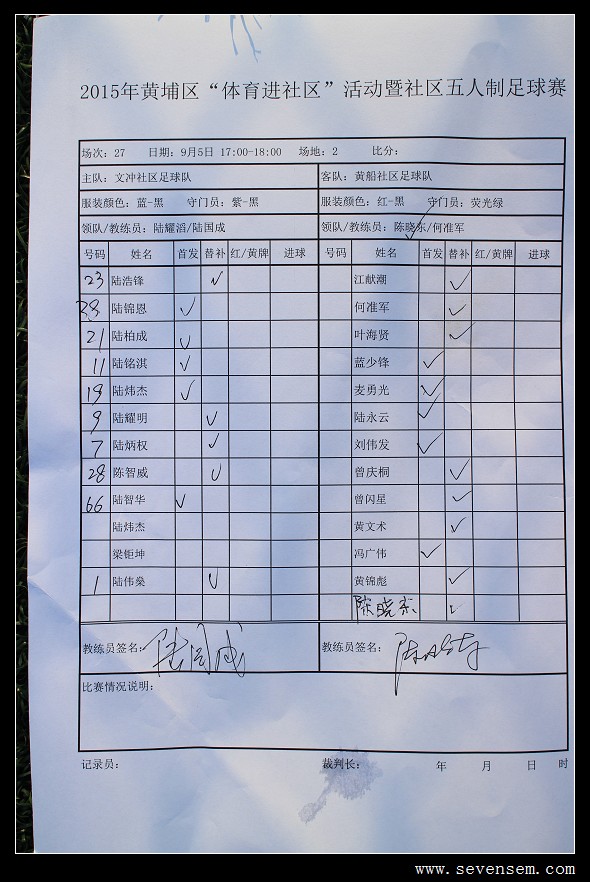 2015年黄埔区“体育进社区”活动暨社区五人制足球赛
场次：27 日期：9月5日 17:00-18:00 场地：2 比分：
主队：文冲社区足球队 客队：黄船社区足球队
服装颜色：蓝-黑 守门员：紫-黑 服装颜色：红-黑 守门员：荧光绿
领队/教练员：陆耀滔/陆国成 领队/教练员：陈晓东/何准军
号码 姓名 首发 替补 红/黄牌 进球 号码 姓名 首发 替补 红/黄牌 进球
23 陆浩锋 ✓ 江献潮 ✓
38 陆锦恩 ✓ 何准军 ✓
21 陆柏成 ✓ 叶海贤 ✓
11 陆铭淇 ✓ 蓝少锋 ✓
19 陆炜杰 ✓ 麦勇光 ✓
9 陆耀明 ✓ 陆永云 ✓
7 陆炳权 ✓ 刘伟发 ✓
28 陈智威 ✓ 曾庆桐 ✓
66 陆智华 ✓ 曾闪星 ✓
陆炜杰 黄文术 ✓
梁钜坤 冯广伟 ✓
1 陆伟燊 ✓ 黄锦彪 ✓
陈晓东 ✓
教练员签名：陆国成 教练员签名：
比赛情况说明：
记录员： 裁判长： 年 月 日 时
www.sevensem.com